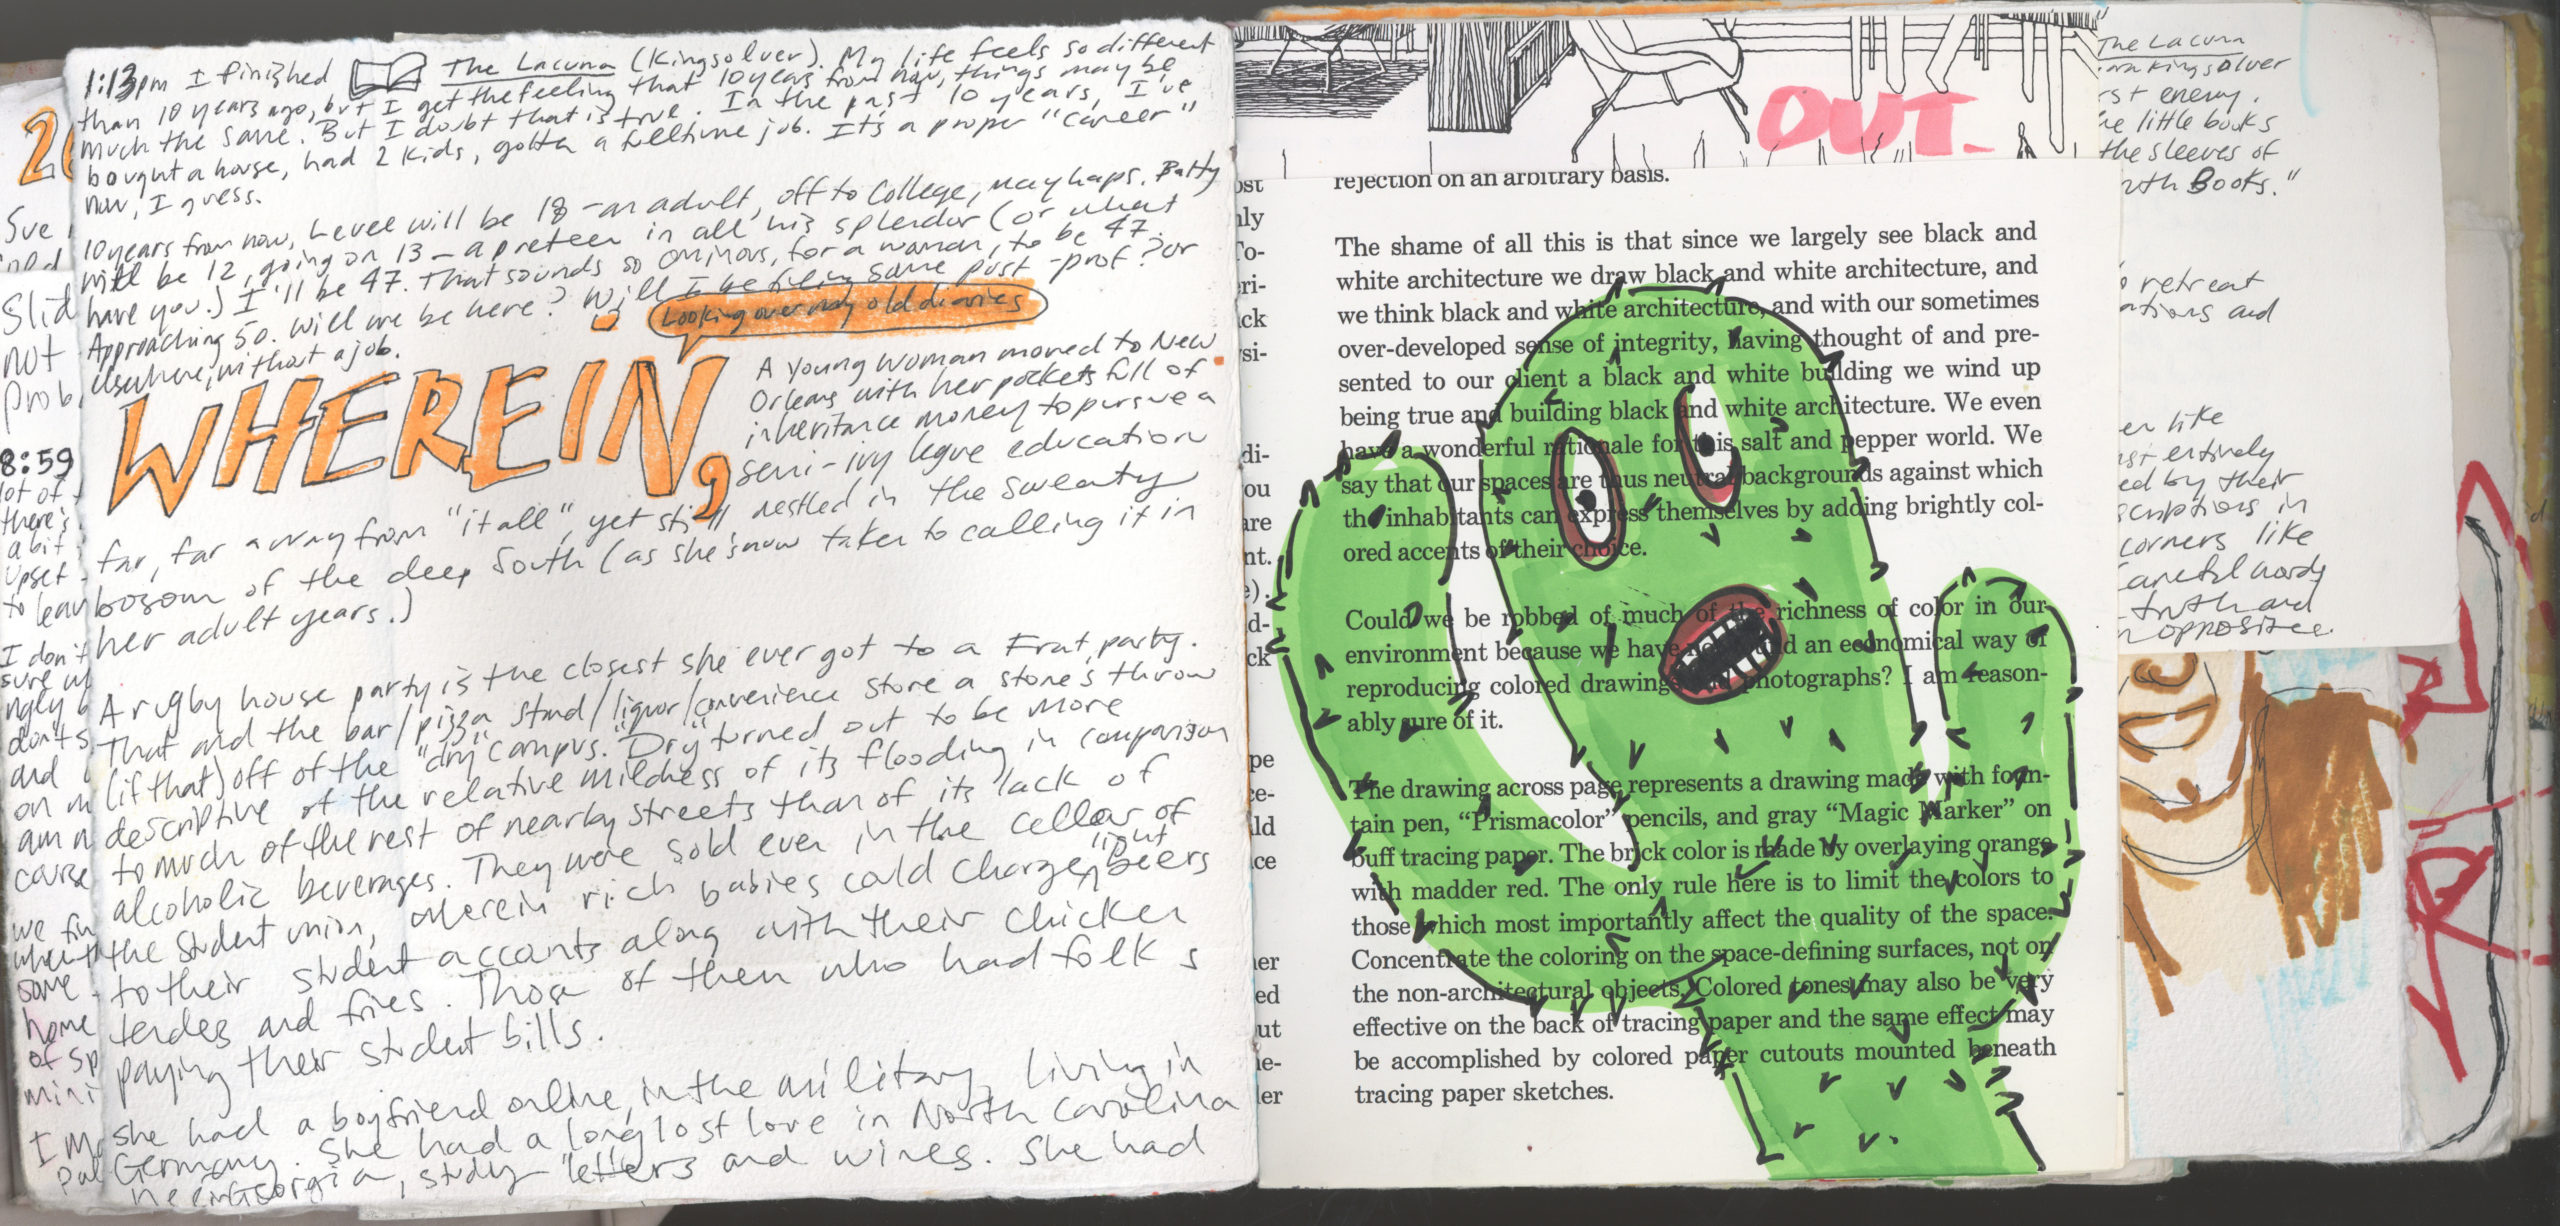 1:13pm I finished The Lacuna (Kingsolver). My life feels so different
than 10 years ago, but I get the feeling that 10 years from now, things may be
much the same. But I doubt that is true. In the past 10 years, I've
bought a house, had 2 kids, gotten a fulltime job. It's a proper "career"
now, I guess.
10 years from now, Level will be 18 - an adult, off to College, mayhaps. Batty
will be 12, going on 13 - a preteen in all his splendor (or what
have you.) I'll be 47. That sounds so ominous, for a woman, to be 47.
Approaching 50. Will we be here? Will I be filing same post-prof? or
elsewhere, without a job.
Looking over my old diaries
WHEREIN,
A young woman moved to New
Orleans with her pockets full of
inheritance money to pursue a
semi-ivy legue education
far, far away from "it all", yet still nestled in the sweaty
bosom of the deep South (as she's now taken to calling it in
her adult years.)
A rugby house party is the closest she ever got to a Frat party.
That and the bar/pizza stand/liquor/convenience store a stone's throw
(if that) off of the "dry" campus. "Dry" turned out to be more
descriptive of the relative mildness of its flooding in comparison
to much of the rest of nearby streets than of its lack of
alcoholic beverages. They were sold even in the cellar of
the student union, wherein rich babies could charge "pout" beers
to their student accounts along with their chicken
tendes and fries. Those of them who had folks
paying their student bills.
She had a boyfriend online, in the military, living in
Germany. She had a long lost love in North Carolina
Georgia, study letters and wines. She had
8:59
lot of
there's
a bit
upset
I don't
don't s
and
on m
am n
cause
some
home
of sp
mini
Slid
not
prob
OUT.
rejection on an arbitrary basis.
The shame of all this is that since we largely see black and
white architecture we draw black and white architecture, and
we think black and white architecture, and with our sometimes
over-developed sense of integrity, having thought of and pre-
sented to our client a black and white building we wind up
being true and building black and white architecture. We even
have a wonderful rationale for this salt and pepper world. We
say that our spaces are thus neutral backgrounds against which
the inhabitants can express themselves by adding brightly col-
ored accents of their choice.
Could we be robbed of much of the richness of color in our
environment because we have not found an economical way of
reproducing colored drawings and photographs? I am reason-
ably sure of it.
The drawing across page represents a drawing made with foun-
tain pen, "Prismacolor" pencils, and gray "Magic Marker" on
buff tracing paper. The brick color is made by overlaying orange
with madder red. The only rule here is to limit the colors to
those which most importantly affect the quality of the space.
Concentrate the coloring on the space-defining surfaces, not on
the non-architectural objects. Colored tones may also be very
effective on the back of tracing paper and the same effect may
be accomplished by colored paper cutouts mounted beneath
tracing paper sketches.
The Lacuna
Kingsolver
rst enemy.
he little books
the sleeves of
Books."
retreat
ations and
er like
entirely
ed by their
scriptions in
corners like
careful words
truth and
opposite.